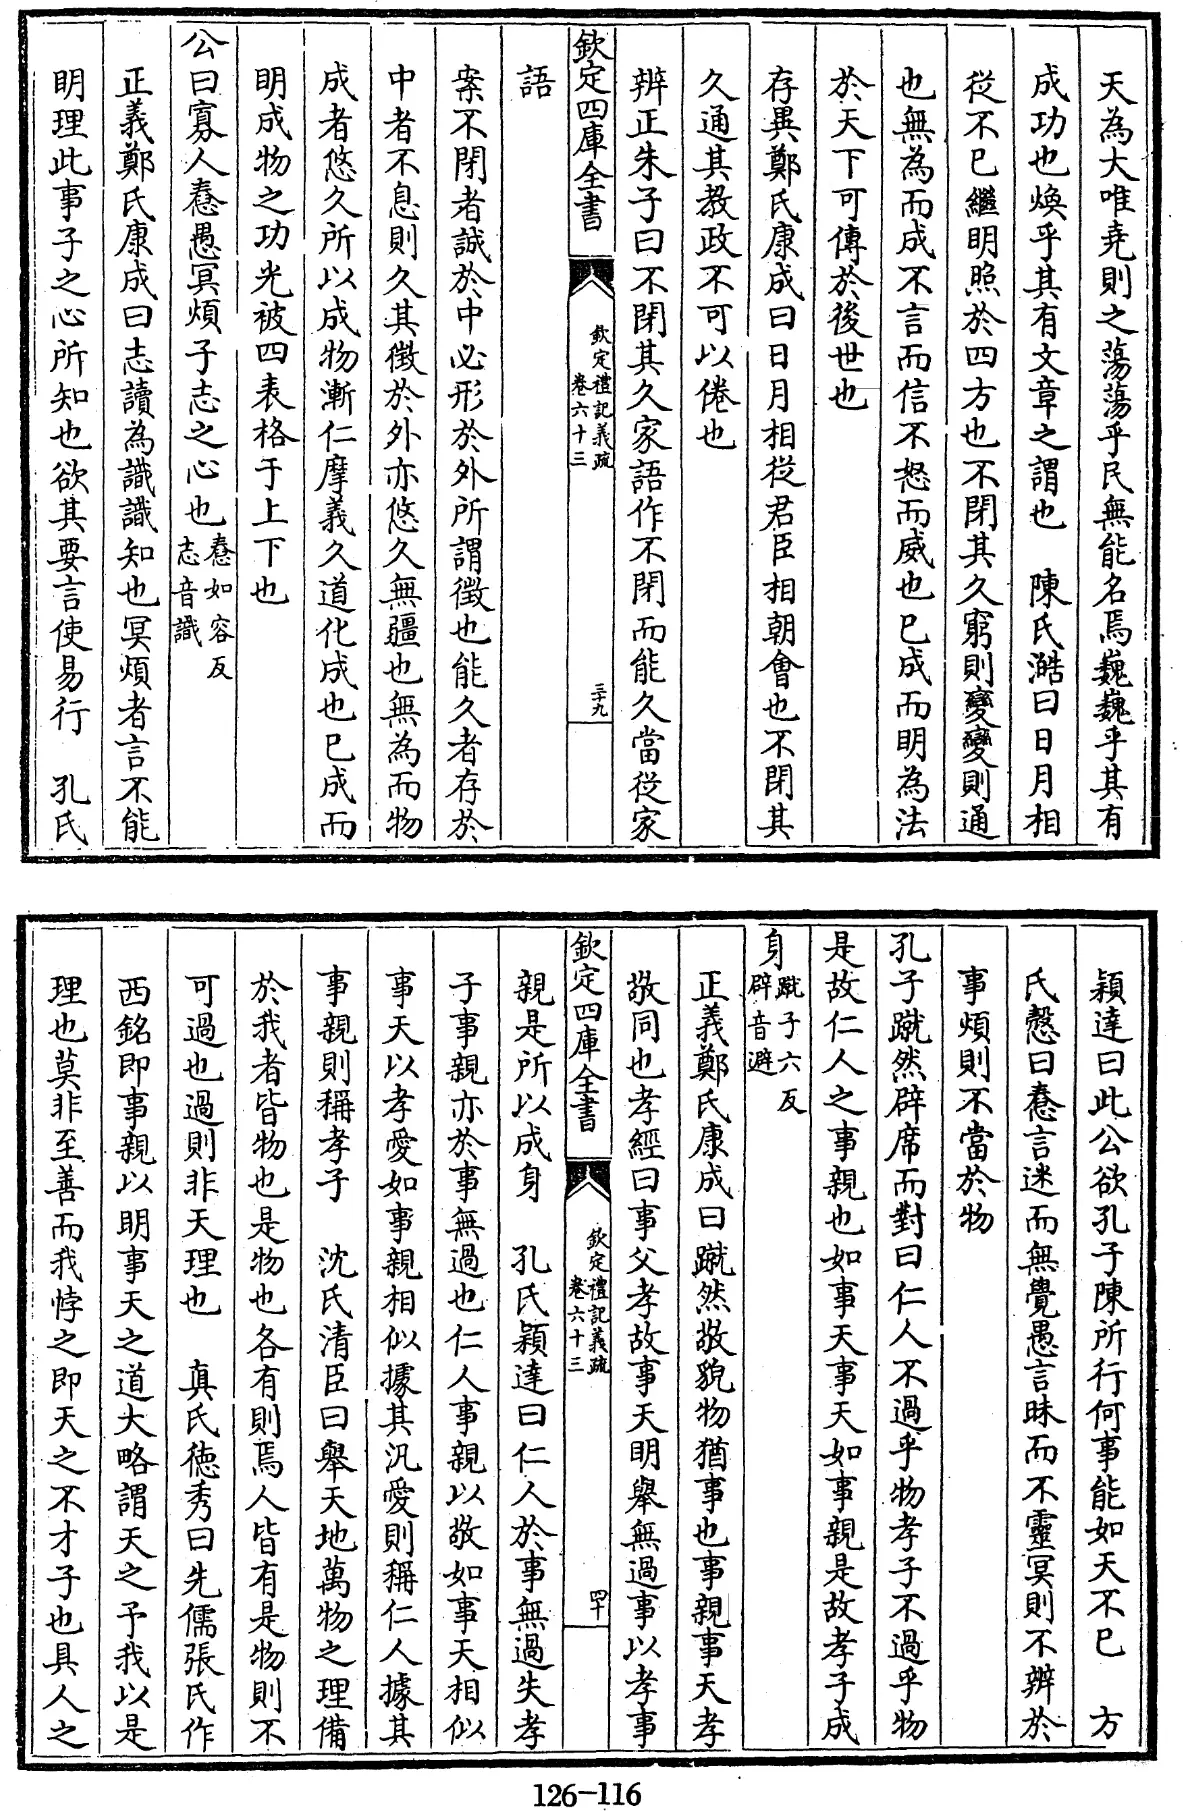 天為大唯堯則之蕩蕩乎民無能名焉巍巍乎其有
成功也煥乎其有文章之謂也　陳氏澔曰日月相
從不已繼明照於四方也不閉其久窮則變變則通
也無為而成不言而信不怒而威也已成而明為法
於天下可傳於後世也
存異鄭氏康成曰日月相從君臣相朝會也不閉其
久通其教政不可以倦也
辨正朱子曰不閉其久家語作不閉而能久當從家
欽定四庫全書
欽定禮記義疏
卷六十三
三十九
語
案不閉者誠於中必形於外所謂徵也能久者存於
中者不息則久其徵於外亦悠久無疆也無為而物
成者悠久所以成物漸仁摩義久道化成也已成而
明成物之功光被四表格于上下也
公曰寡人憃愚冥煩子志之心也憃如容反
志音識
正義鄭氏康成曰志讀為識識知也冥煩者言不能
明理此事子之心所知也欲其要言使易行　孔氏
穎達曰此公欲孔子陳所行何事能如天不已　方
氏慤曰憃言迷而無覺愚言昧而不靈冥則不辨於
事煩則不當於物
孔子蹴然辟席而對曰仁人不過乎物孝子不過乎物
是故仁人之事親也如事天事天如事親是故孝子成
身蹴子六反
辟音避
正義鄭氏康成曰蹴然敬貌物猶事也事親事天孝
敬同也孝經曰事父孝故事天明舉無過事以孝事
欽定四庫全書
欽定禮記義疏
卷六十三
四十
親是所以成身　孔氏穎達曰仁人於事無過失孝
子事親亦於事無過也仁人事親以敬如事天相似
事天以孝愛如事親相似據其汎愛則稱仁人據其
事親則稱孝子　沈氏清臣曰舉天地萬物之理備
於我者皆物也是物也各有則焉人皆有是物則不
可過也過則非天理也　真氏德秀曰先儒張氏作
西銘即事親以明事天之道大略謂天之予我以是
理也莫非至善而我悖之即天之不才子也具人之
126-116